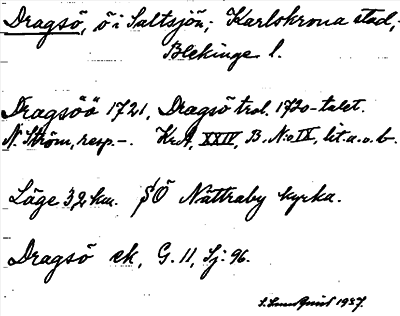 Dragsö, ö i Saltsjön; Karlskrona stad,
Blekinge l.
Dragsöö 1721, Dragsö trol. 1720-talet.
N. Ström, resp. -. KrA, XXIV, B. N:o IX, lit. a. o. b.
Läge 3,2 km. SÖ Nättraby kyrka.
Dragsö ek, G. 11, Sj: 96.
S. Lundquist 1937.